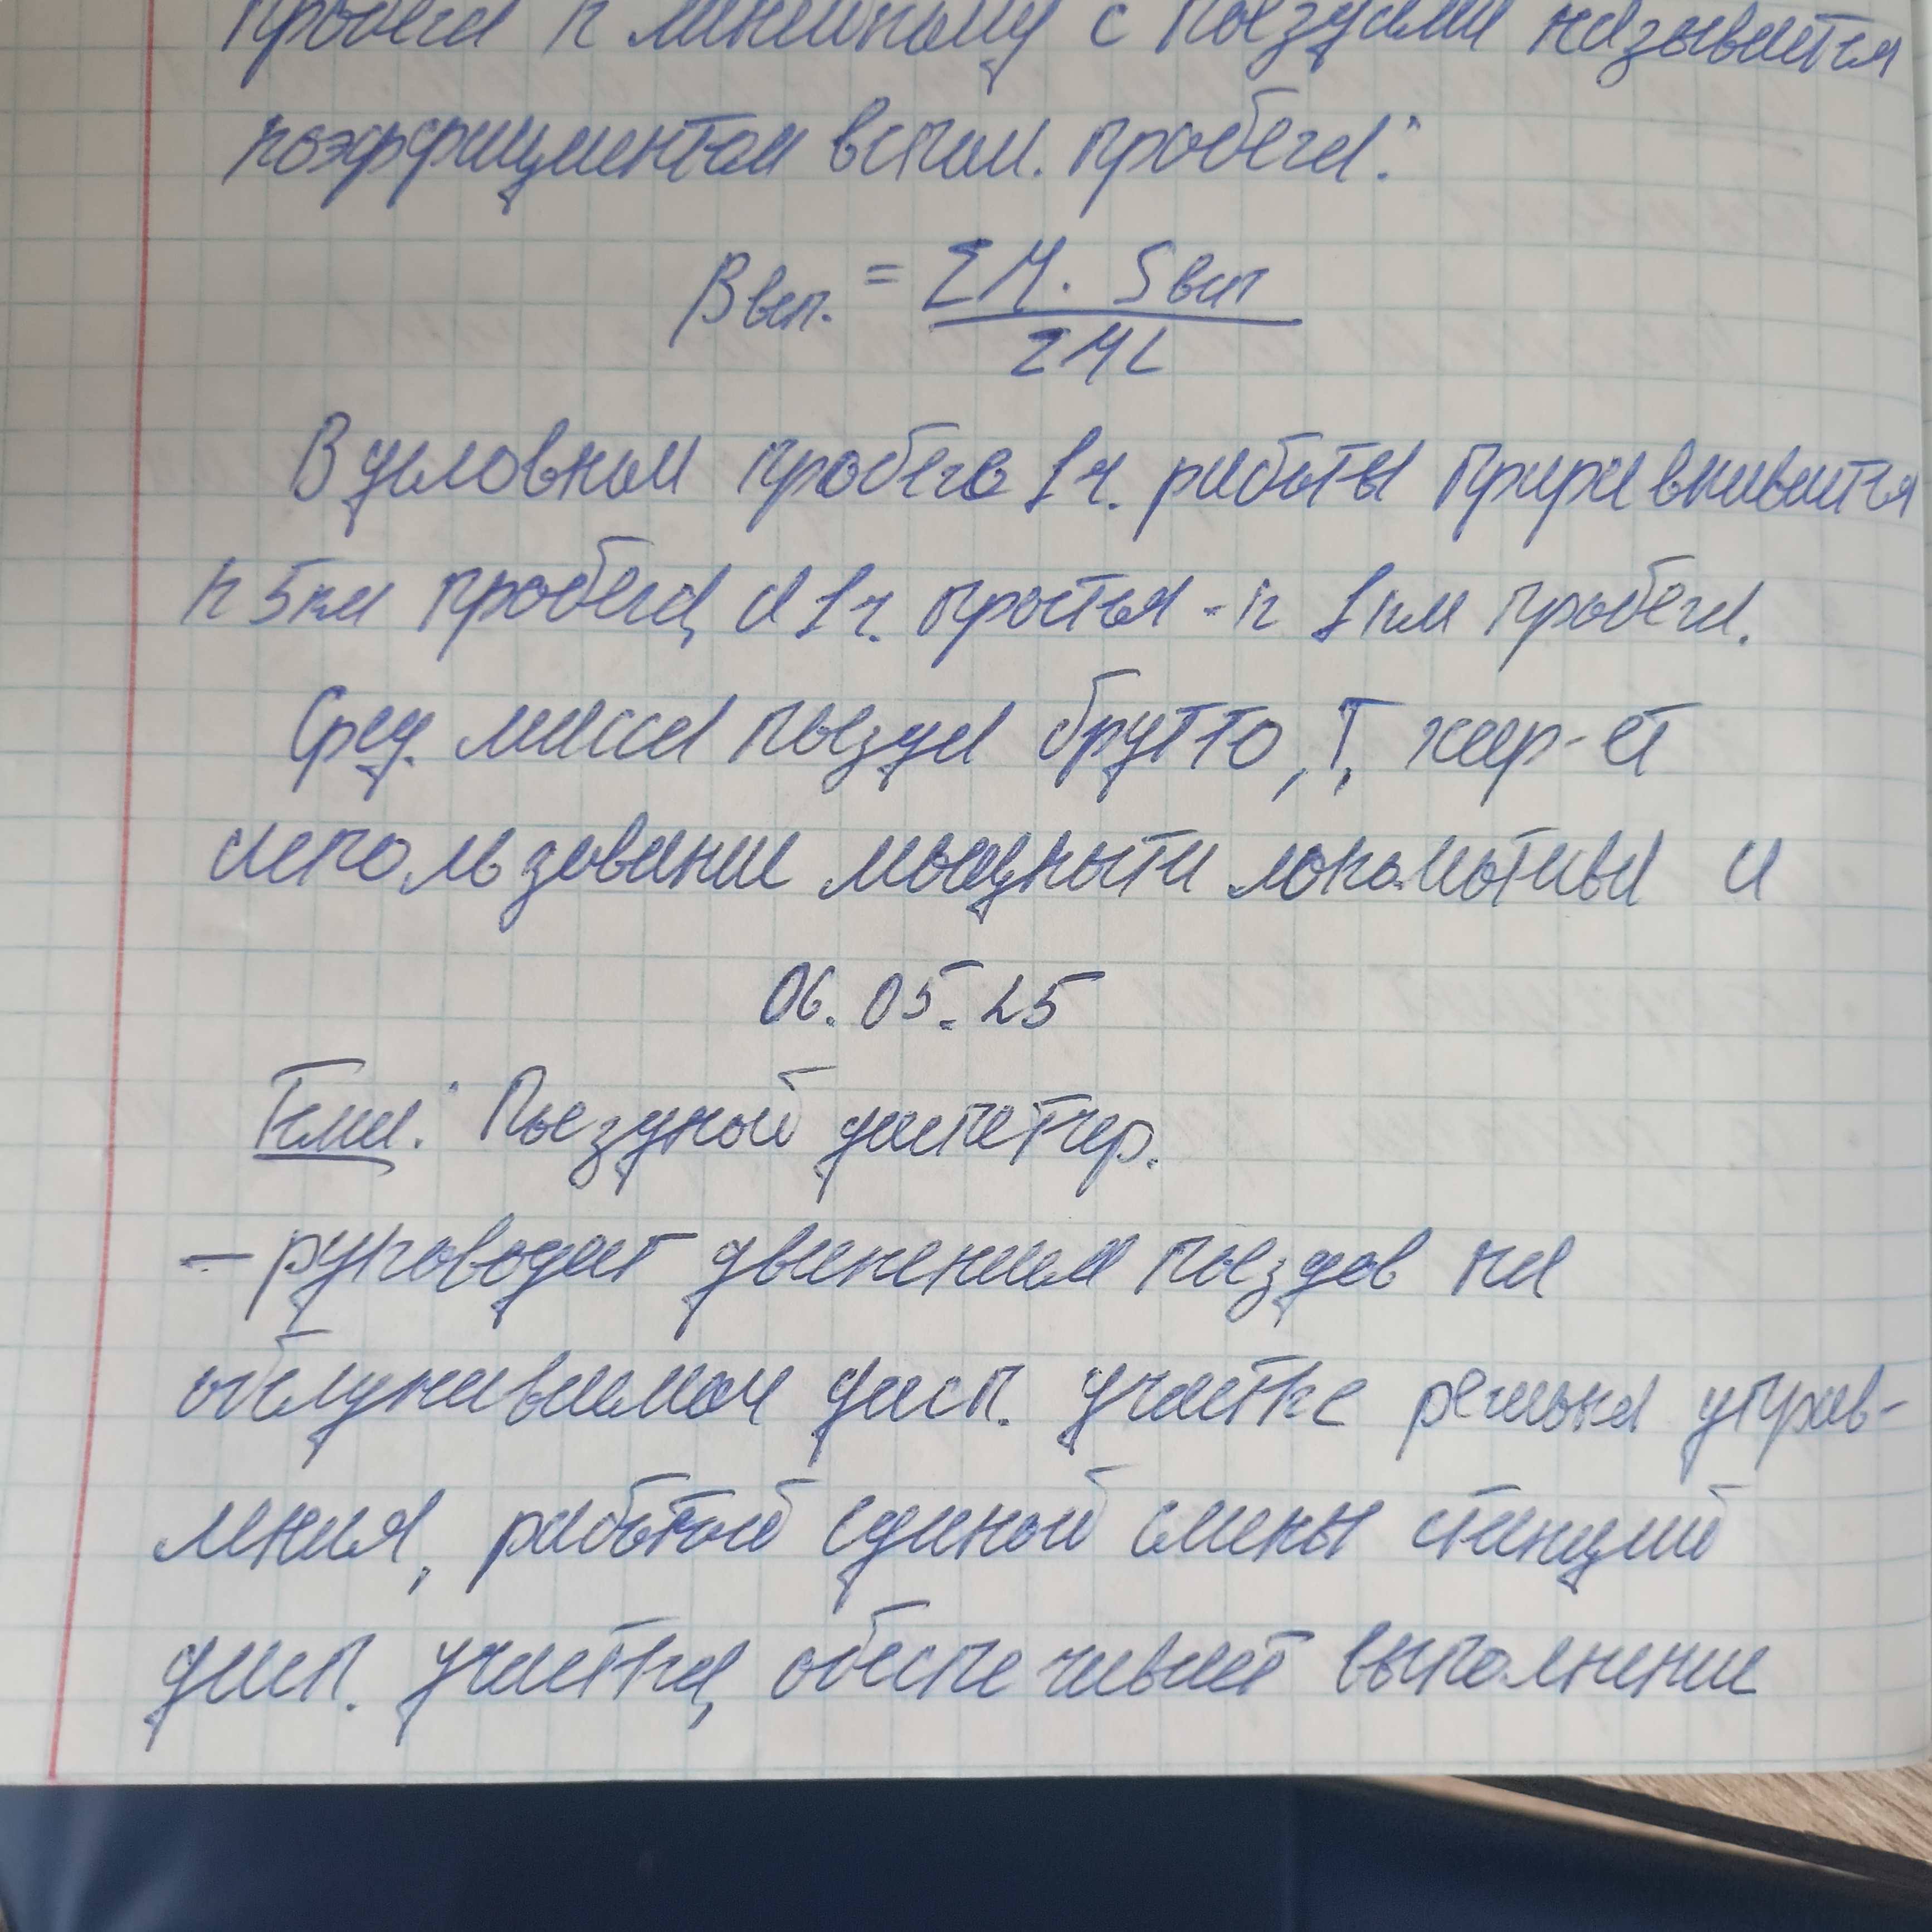 пробега к линейному с поездами называется
коэффициентом вспом. пробега:
βвсп. = ΣM. Sвсп / ΣML
В условном пробеге 1ч. работы приравнивается
к 5км пробега, а 1ч. простоя - к 1км пробега.
Сред. масса поезда брутто, т, хар-ет
использование мощности локомотива и
06.05.25
Тема: Поездной диспетчер.
– руководит движением поездов на
обслуживаемом дисп. участке региона управ-
ления, работой единой смены станций
дисп. участка, обеспечивает выполнение